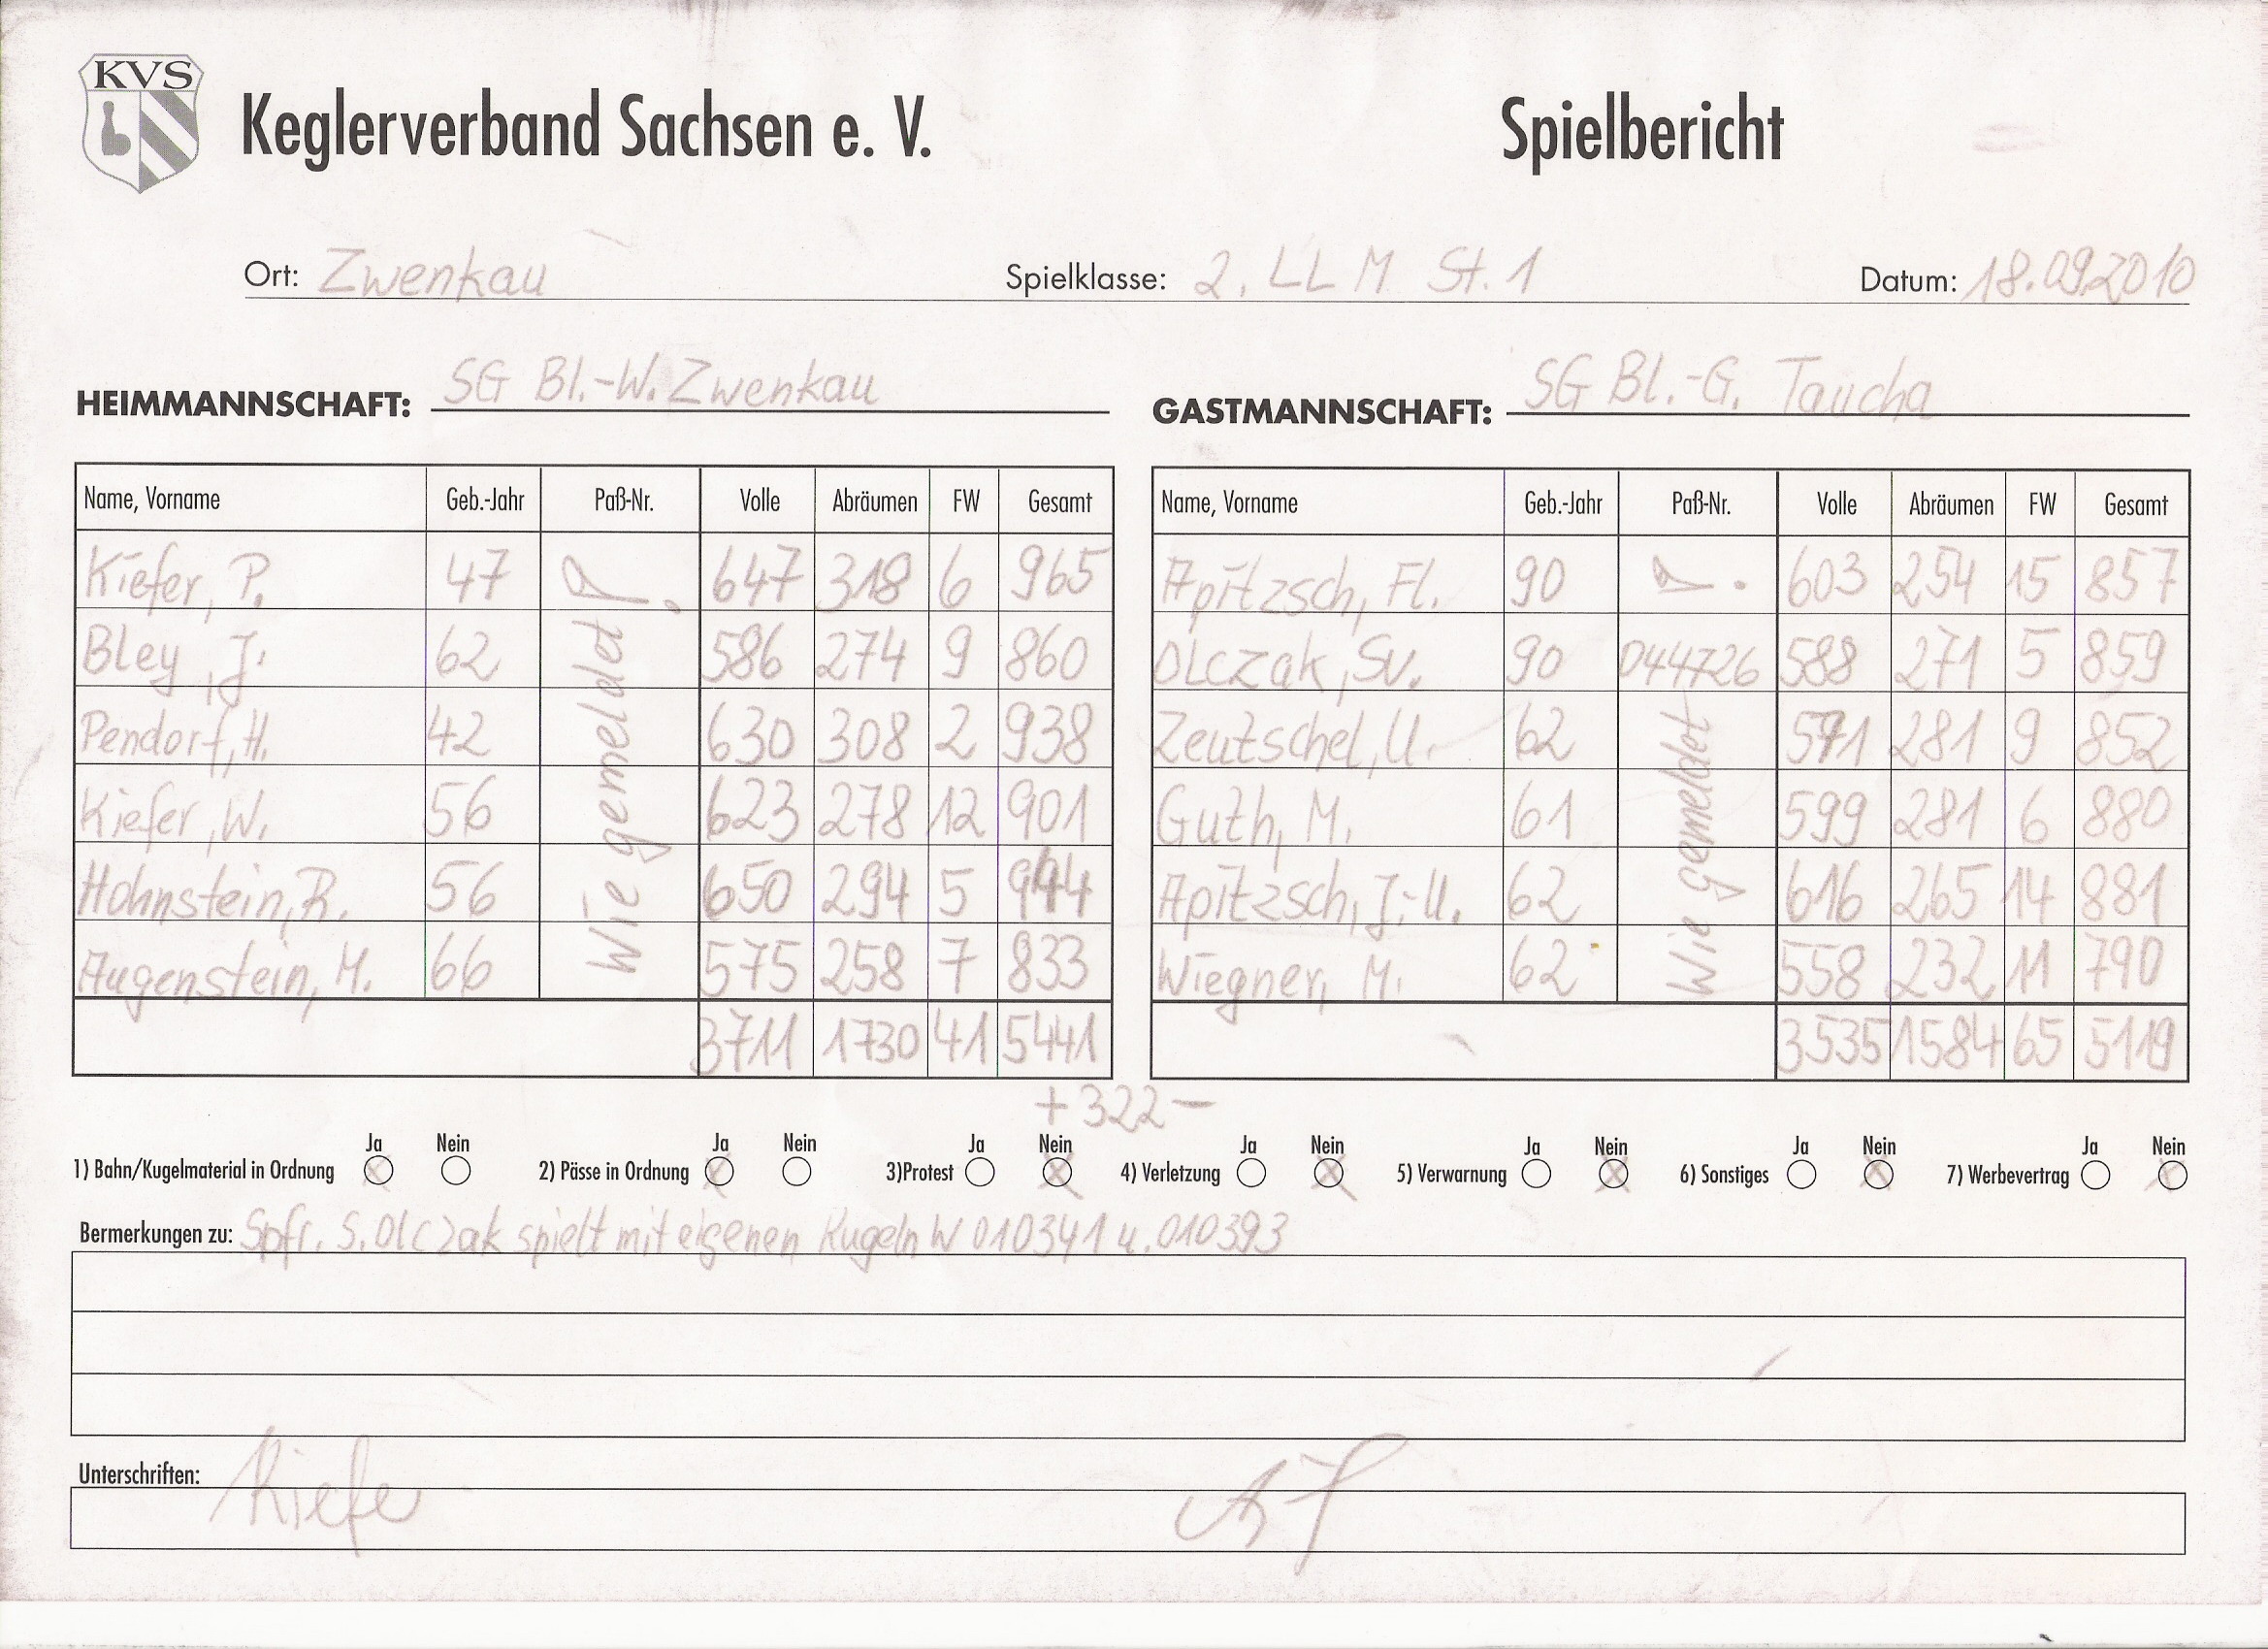 KVS
Keglerverband Sachsen e. V. Spielbericht
Ort: Zwenkau Spielklasse: 2. LL M St. 1 Datum: 18.09.2010
HEIMMANNSCHAFT: SG Bl.-W. Zwenkau GASTMANNSCHAFT: SG Bl.-G. Taucha
Name, Vorname Geb.-Jahr Paß-Nr. Volle Abräumen FW Gesamt
Kiefer, P. 47 647 318 6 965
Bley, J. 62 586 274 9 860
Pendorf, H. 42 630 308 2 938
Kiefer, W. 56 623 278 12 901
Hohnstein, R. 56 650 294 5 944
Augenstein, M. 66 575 258 7 833
Wie gemeldet
3711 1730 41 5441
Name, Vorname Geb.-Jahr Paß-Nr. Volle Abräumen FW Gesamt
Apitzsch, Fl. 90 603 254 15 857
Olczak, Sv. 90 044726 588 271 5 859
Zeutzschel, U. 62 571 281 9 852
Guth, M. 61 599 281 6 880
Apitzsch, J.-U. 62 616 265 14 881
Wiegner, M. 62 558 232 11 790
Wie gemeldet
3535 1584 65 5119
+ 322 -
Ja Nein Ja Nein Ja Nein Ja Nein Ja Nein Ja Nein Ja Nein
1) Bahn/Kugelmaterial in Ordnung 2) Pässe in Ordnung 3)Protest 4) Verletzung 5) Verwarnung 6) Sonstiges 7) Werbevertrag
Bermerkungen zu: Spfr. S. Olczak spielt mit eigenen Kugeln W 010341 u. 010393
Unterschriften: Kiefe